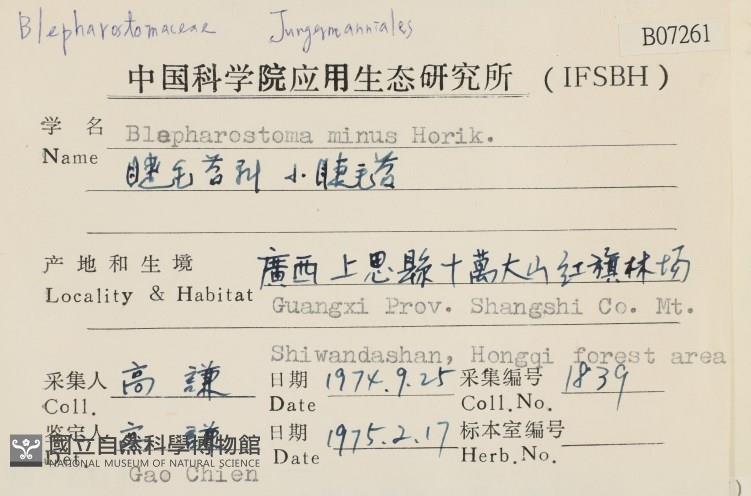 Blepharostomaceae Jungermanniales
B07261
中国科学院应用生态研究所 (IFSBH)
学名 Blepharostoma minus Horik.
Name 睫毛苔科 小睫毛苔
产地和生境 廣西上思縣十萬大山红旗林场
Locality & Habitat Guangxi Prov. Shangshi Co. Mt.
Shiwandashan, Hongqi forest area
采集人 高謙 日期 1974.9.25 采集编号 1839
Coll. Date Coll.No.
鉴定人 高謙 日期 1975.2.17 标本室编号
Det. Date Herb.No.
Gao Chien
國立自然科學博物館
NATIONAL MUSEUM OF NATURAL SCIENCE